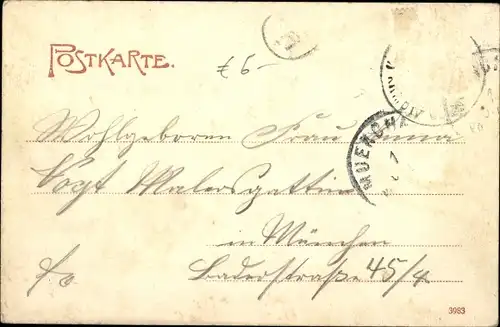 POSTKARTE.
€ 6-
MUENCHEN
1
Wohlgeboren Frau Anna
Vogt Malersgattin
in München
Baaderstraße 45/4
3983